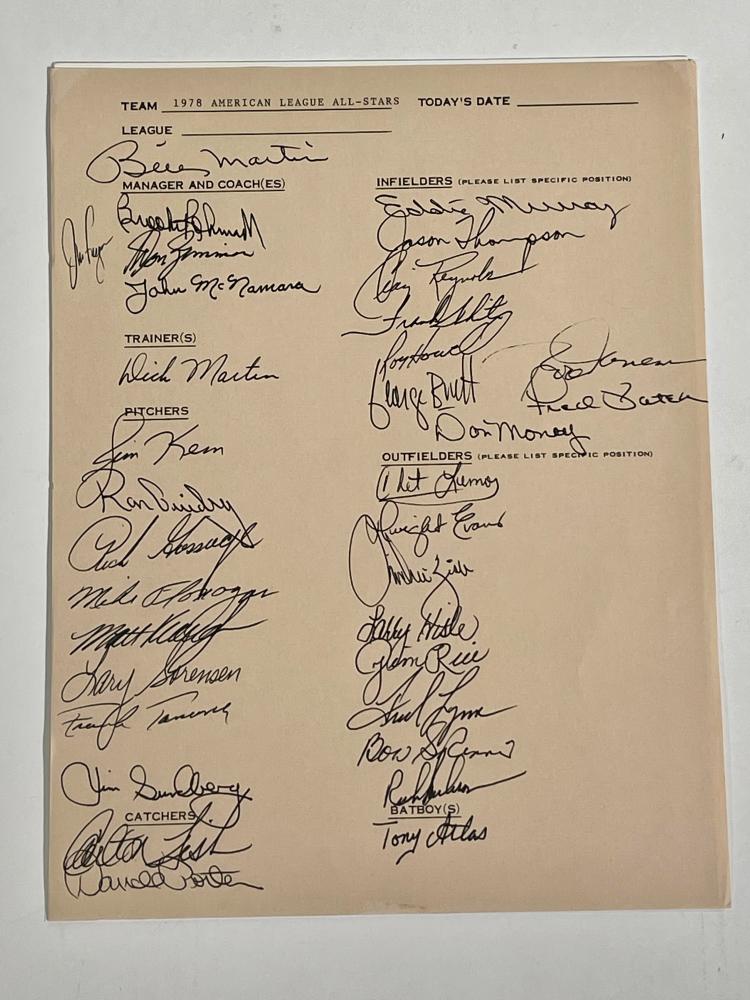 TEAM 1978 AMERICAN LEAGUE ALL-STARS TODAY'S DATE
LEAGUE
Billy Martin
MANAGER AND COACH(ES)
Don Zimmer
John McNamara
TRAINER(S)
Dick Martin
PITCHERS
Jim Kern
Ron Guidry
Rich Gossage
Mike Flanagan
Matt Keough
Lary Sorensen
Frank Tanana
Jim Sundberg
CATCHERS
Carlton Fisk
Darrell Porter
INFIELDERS (PLEASE LIST SPECIFIC POSITION)
Eddie Murray
Jason Thompson
Craig Reynolds
Frank White
Roy Howell
George Brett
Fred Patek
Don Money
OUTFIELDERS (PLEASE LIST SPECIFIC POSITION)
Chet Lemon
Dwight Evans
Richie Zisk
Larry Hisle
Jim Rice
Fred Lynn
BATBOY(S)
Tony Atlas